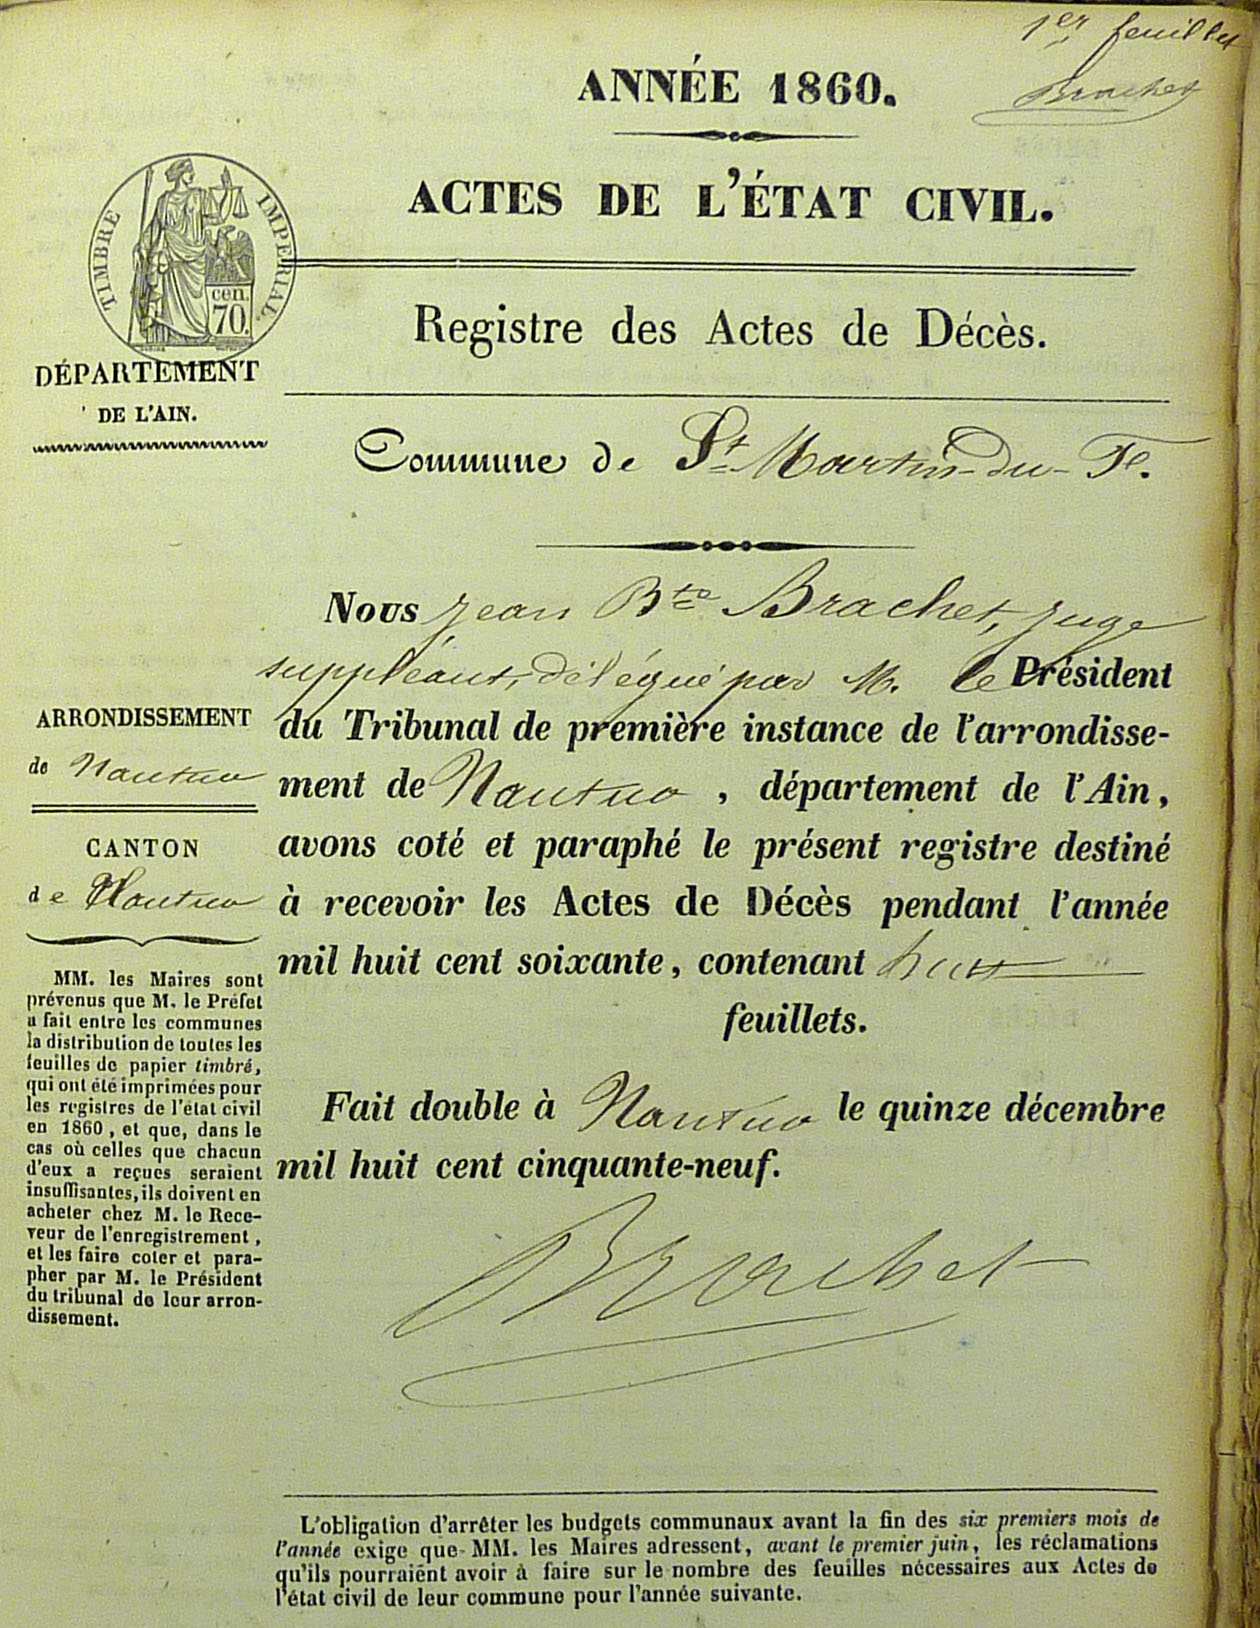 1er feuillet
Brachet
ANNÉE 1860.
ACTES DE L'ÉTAT CIVIL.
TIMBRE IMPERIAL.
cen.
70.
Registre des Actes de Décès.
DÉPARTEMENT
DE L'AIN.
Commune de St Martin-du-Fe.
Nous jean Bte Brachet, juge
suppléant, délégué par M. le Président
du Tribunal de première instance de l'arrondisse-
ment de Nantua, département de l'Ain,
avons coté et paraphé le présent registre destiné
à recevoir les Actes de Décès pendant l'année
mil huit cent soixante, contenant huit
feuillets.
Fait double à Nantua le quinze décembre
mil huit cent cinquante-neuf.
Brachet
ARRONDISSEMENT
de Nantua
CANTON
de Nantua
MM. les Maires sont
prévenus que M. le Préfet
a fait entre les communes
la distribution de toutes les
feuilles de papier timbré,
qui ont été imprimées pour
les registres de l'état civil
en 1860, et que, dans le
cas où celles que chacun
d'eux a reçues seraient
insuffisantes, ils doivent en
acheter chez M. le Rece-
veur de l'enregistrement,
et les faire coter et para-
pher par M. le Président
du tribunal de leur arron-
dissement.
L'obligation d'arrêter les budgets communaux avant la fin des six premiers mois de
l'année exige que MM. les Maires adressent, avant le premier juin, les réclamations
qu'ils pourraient avoir à faire sur le nombre des feuilles nécessaires aux Actes de
l'état civil de leur commune pour l'année suivante.